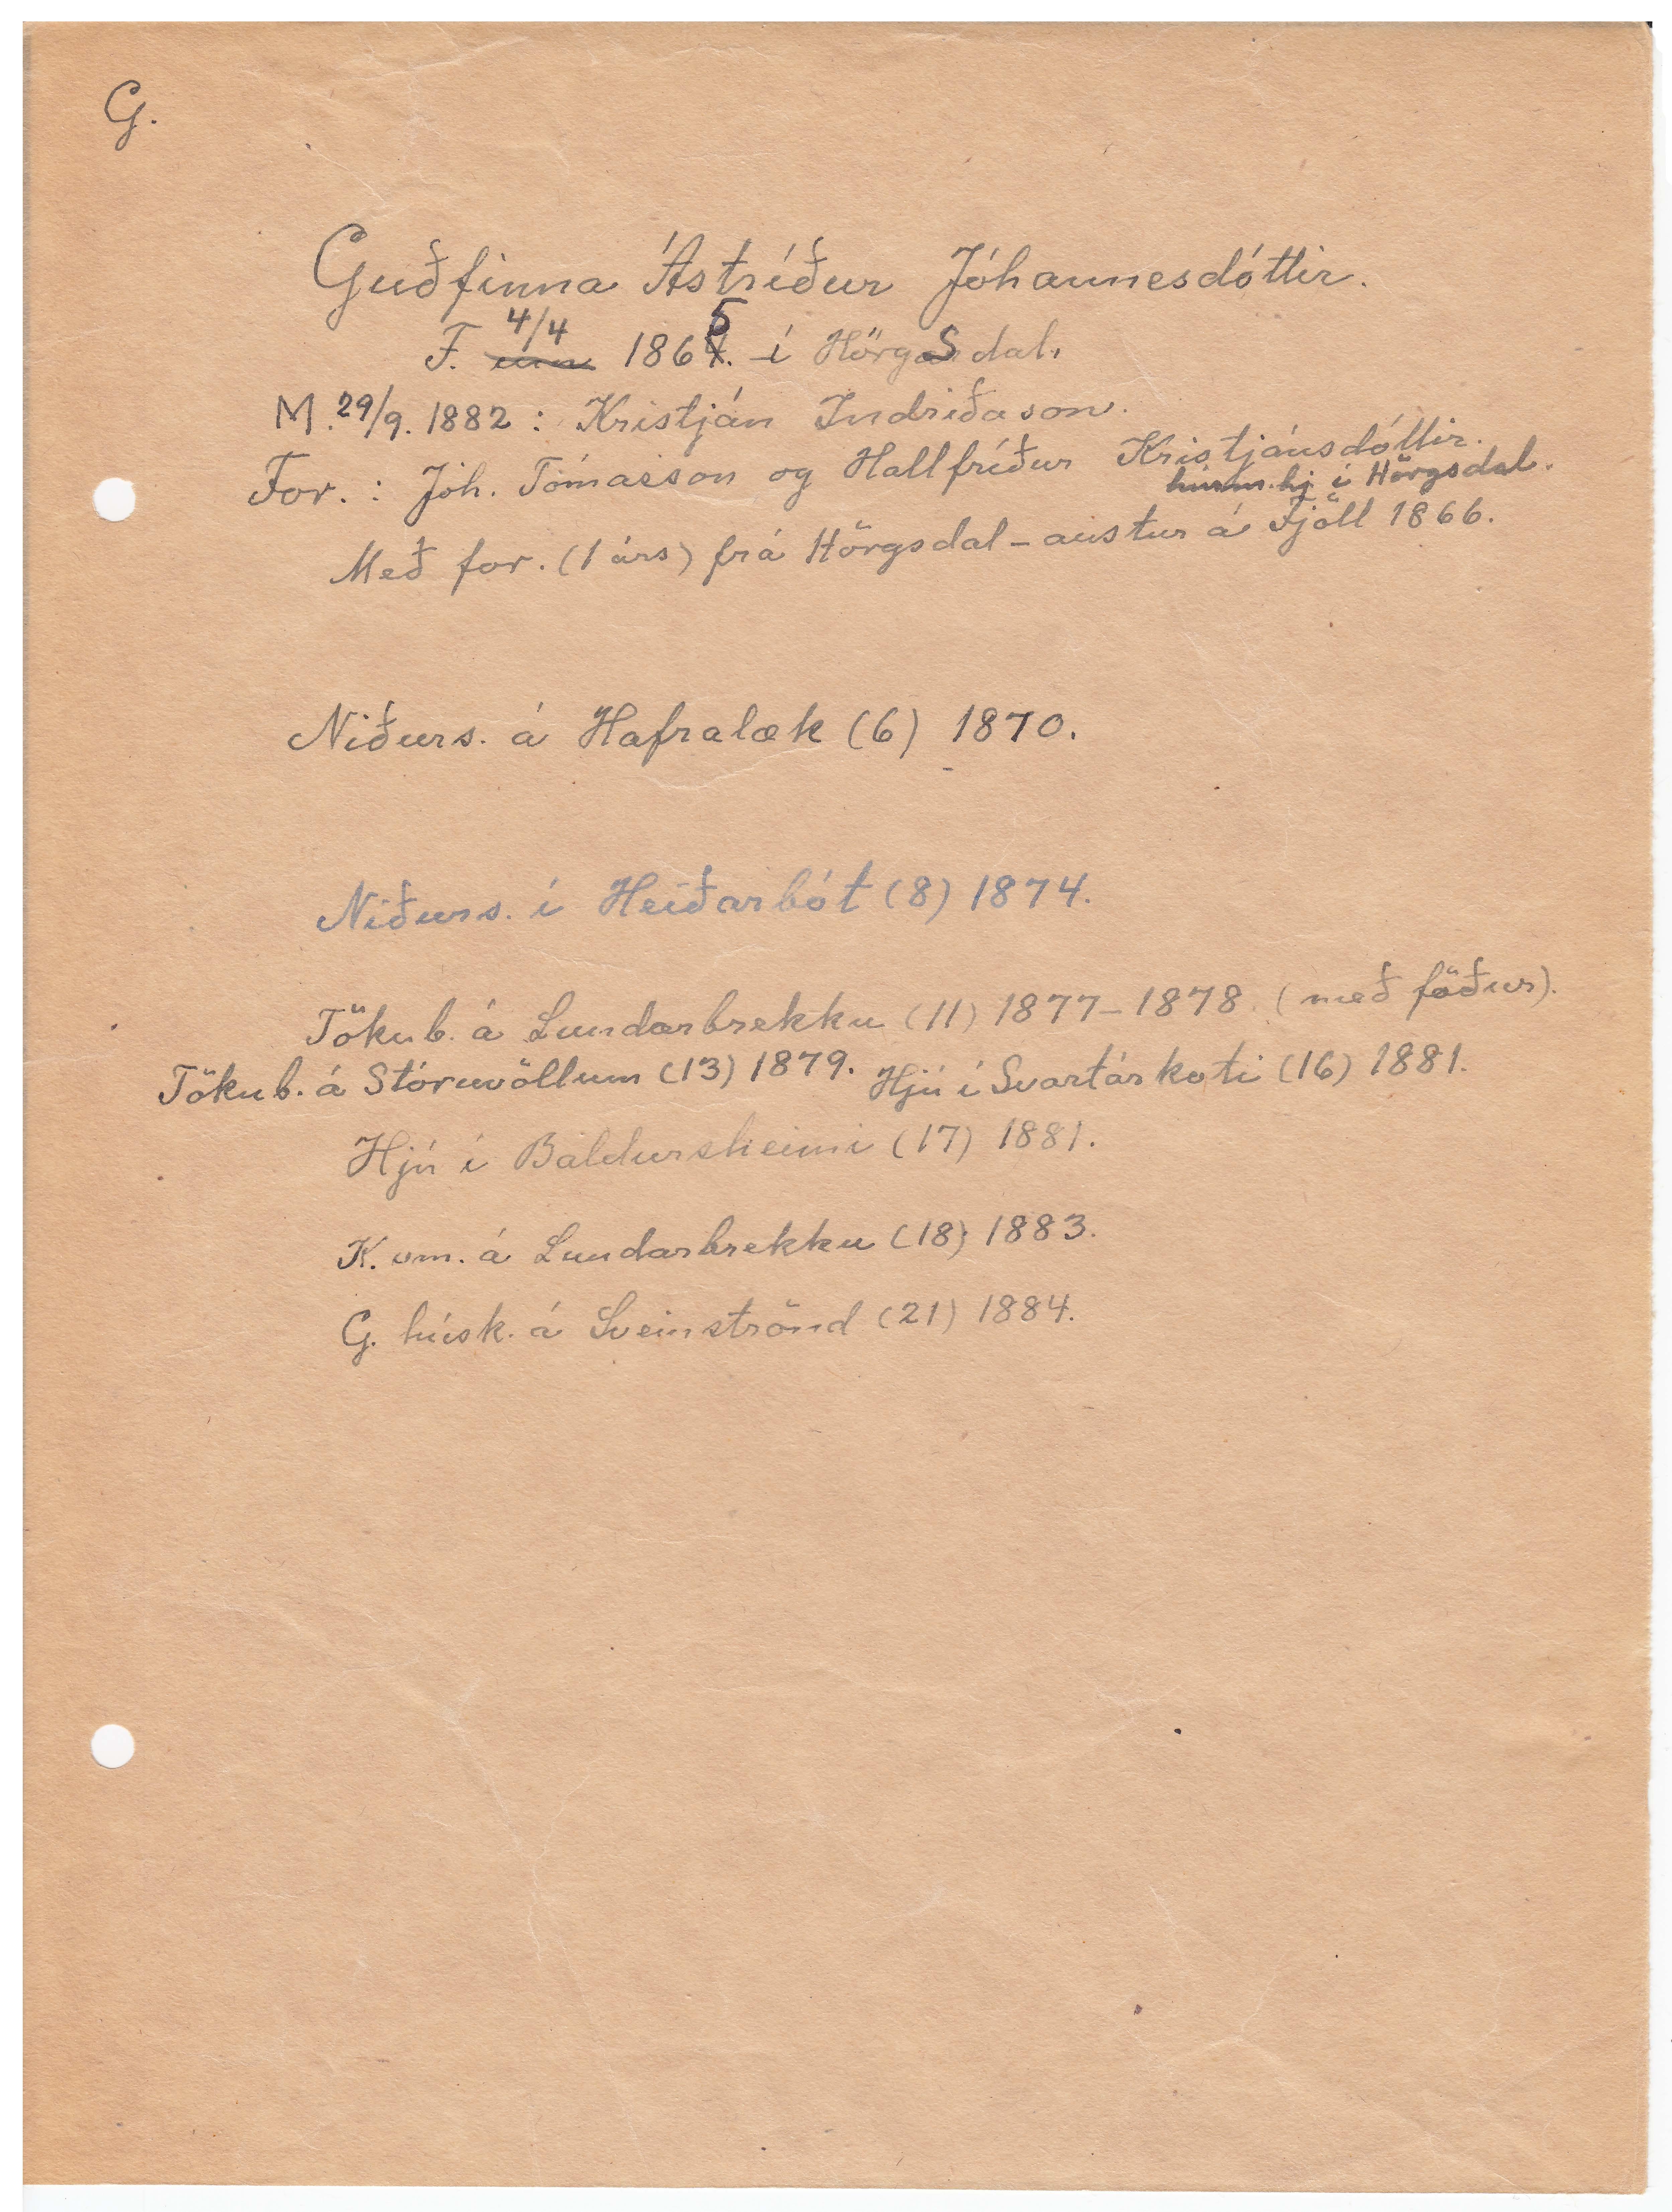 G.
Guðfinna Ástríður Jóhannesdóttir.
F. 4/4 1865. í Hörgsdal.
M. 29/9. 1882 : Kristján Indriðason.
For. : Jóh. Tómasson og Hallfríður Kristjánsdóttir.
hj. í Hörgsdal.
Með for. (1 árs) frá Hörgsdal - austur á Fjöll 1866.
Niðurs. á Hafralæk (6) 1870.
Niðurs. í Heiðarbót (8) 1874.
Tökub. á Lundarbrekku (11) 1877-1878. (með föður).
Tökub. á Stóruvöllum (13) 1879. Hjú í Svartárkoti (16) 1881.
Hjú í Baldursheimi (17) 1881.
K. vm. á Lundarbrekku (18) 1883.
G. húsk. á Sveinströnd (21) 1884.